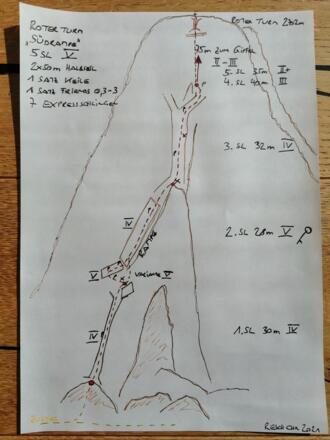 ROTER TURM
„SÜDRAMPE"
5 SL V
2x50m HALBSEIL
1 SATZ KEILE
1 SATZ FRIENDS 0,3-3
7 EXPRESSSCHLINGEN
ROTER TURM
95m ZUM GIPFEL
II - III
5. SL 35m V+
4. SL 40m III
3. SL 32m IV
IV
RAMPE
2. SL 28m V
V
VARIANTE V
IV
1. SL 30m IV
2021